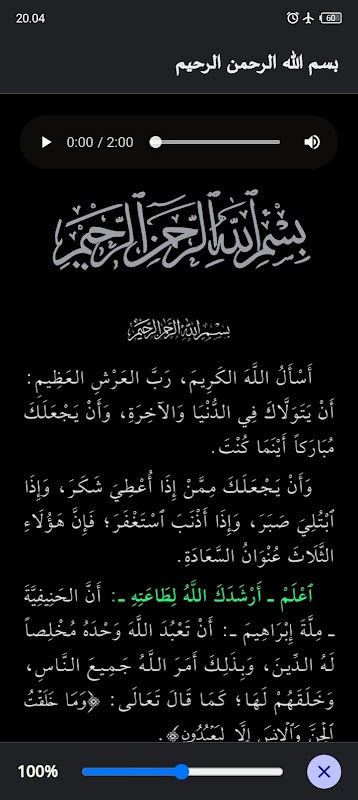 20.04
60
بسم الله الرحمن الرحيم
0:00 / 2:00
بِسْمِ اللَّهِ الرَّحْمَنِ الرَّحِيمِ
بِسْمِ اللَّهِ الرَّحْمَنِ الرَّحِيمِ
أَسْأَلُ اللَّهَ الكَرِيمَ، رَبَّ العَرْشِ العَظِيمِ:
أَنْ يَتَوَلَّاكَ فِي الدُّنْيَا وَالآخِرَةِ، وَأَنْ يَجْعَلَكَ
مُبَارَكاً أَيْنَمَا كُنْتَ.
وَأَنْ يَجْعَلَكَ مِمَّنْ إِذَا أُعْطِيَ شَكَرَ، وَإِذَا
ٱبْتُلِيَ صَبَرَ، وَإِذَا أَذْنَبَ ٱسْتَغْفَرَ؛ فَإِنَّ هَؤُلَاءِ
الثَّلَاثَ عُنْوَانُ السَّعَادَةِ.
ٱعْلَمْ ـ أَرْشَدَكَ اللَّهُ لِطَاعَتِهِ ـ: أَنَّ الحَنِيفِيَّةَ
ـ مِلَّةَ إِبْرَاهِيمَ ـ: أَنْ تَعْبُدَ اللَّهَ وَحْدَهُ مُخْلِصاً
لَهُ الدِّينَ، وَبِذَلِكَ أَمَرَ اللَّهُ جَمِيعَ النَّاسِ،
وَخَلَقَهُمْ لَهَا؛ كَمَا قَالَ تَعَالَى: ﴿وَمَا خَلَقْتُ
ٱلْجِنَّ وَٱلْإِنسَ إِلَّا لِيَعْبُدُونِ﴾.
100%